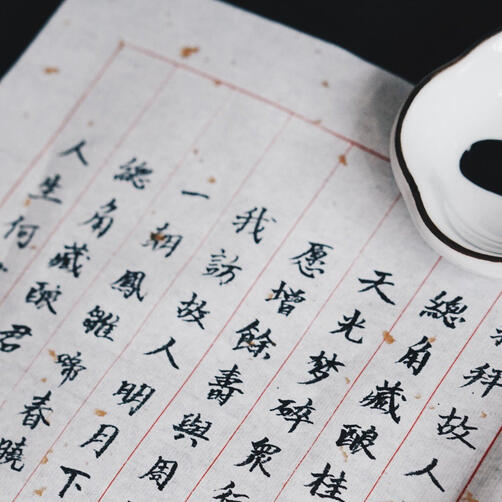 拜故人
總角藏釀桂
天光梦碎衆
愿增餘壽與周
我訪故人明月下
一朝鳳雛啼春曉
總角藏釀君
人生何